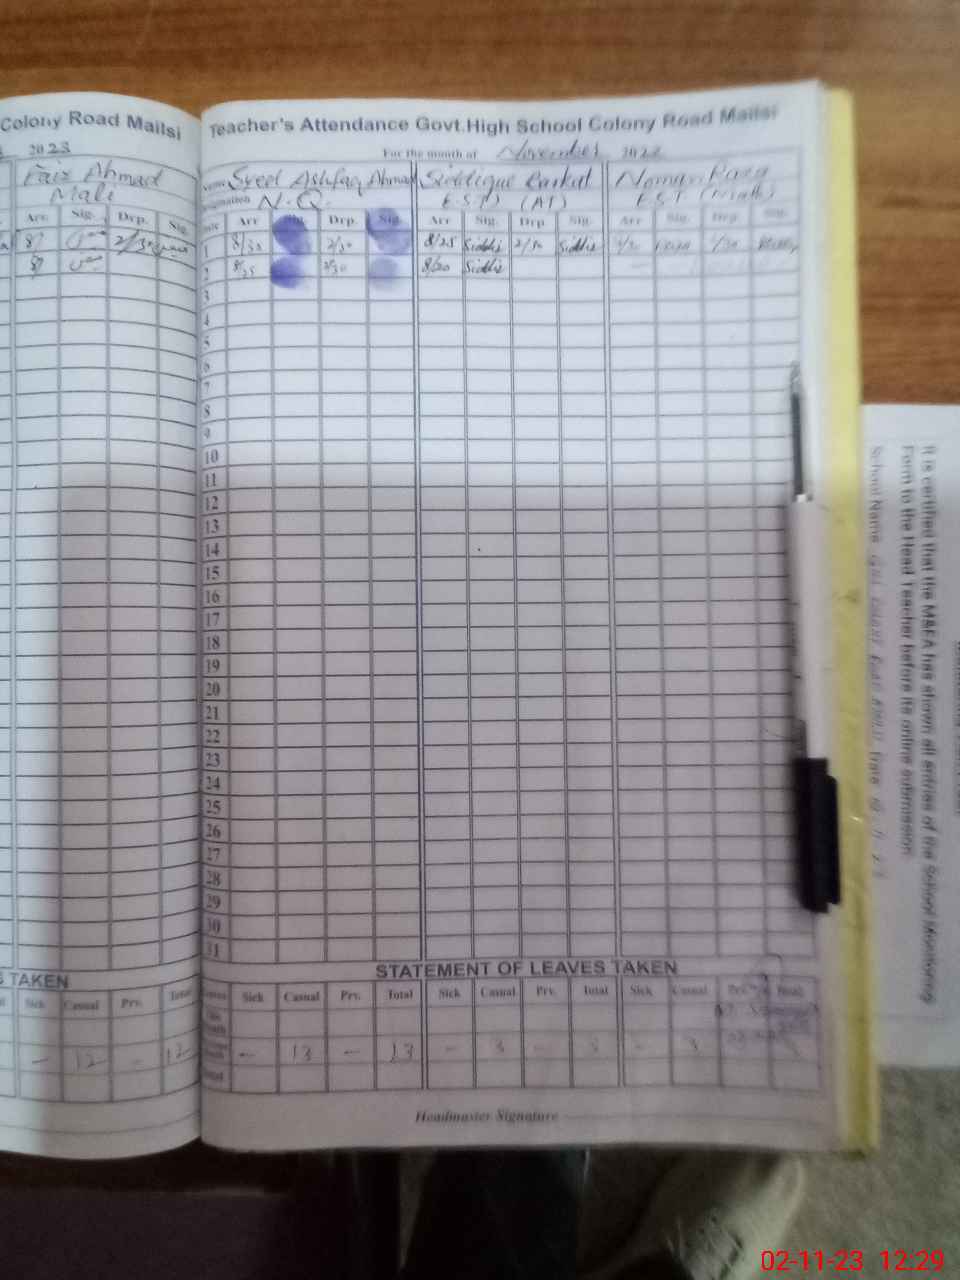 Colony Road Mailsi
2023
Faiz Ahmad
Mali
Arr. Sig. Drp. Sig.
8/ 2/30
8/
S TAKEN
Sick Casual Prv. Total
- 12 - 12
Teacher's Attendance Govt.High School Colony Road Mailsi
For the month of November 202
Syed Ashfaq Ahmad Siddique Noman Raza
N.Q. E.S.T) (AT) E.S.T
Arr Sig. Drp. Sig. Arr Sig. Drp. Sig. Arr Sig. Drp. Sig.
1 8/30 2/30 8/25 Siddiq 2/30 Siddiq
2 8/25 2/30 8/20 Siddiq
3
4
5
6
7
8
9
10
11
12
13
14
15
16
17
18
19
20
21
22
23
24
25
26
27
28
29
30
31
STATEMENT OF LEAVES TAKEN
Sick Casual Prv. Total Sick Casual Prv. Total Sick Casual
- 13 - 13 - 3 - 3 - 3
Headmaster Signature
It is certified that the M&EA has shown all entries of the School Monitoring
Form to the Head Teacher before its online submission.
School Name
02-11-23 12:29